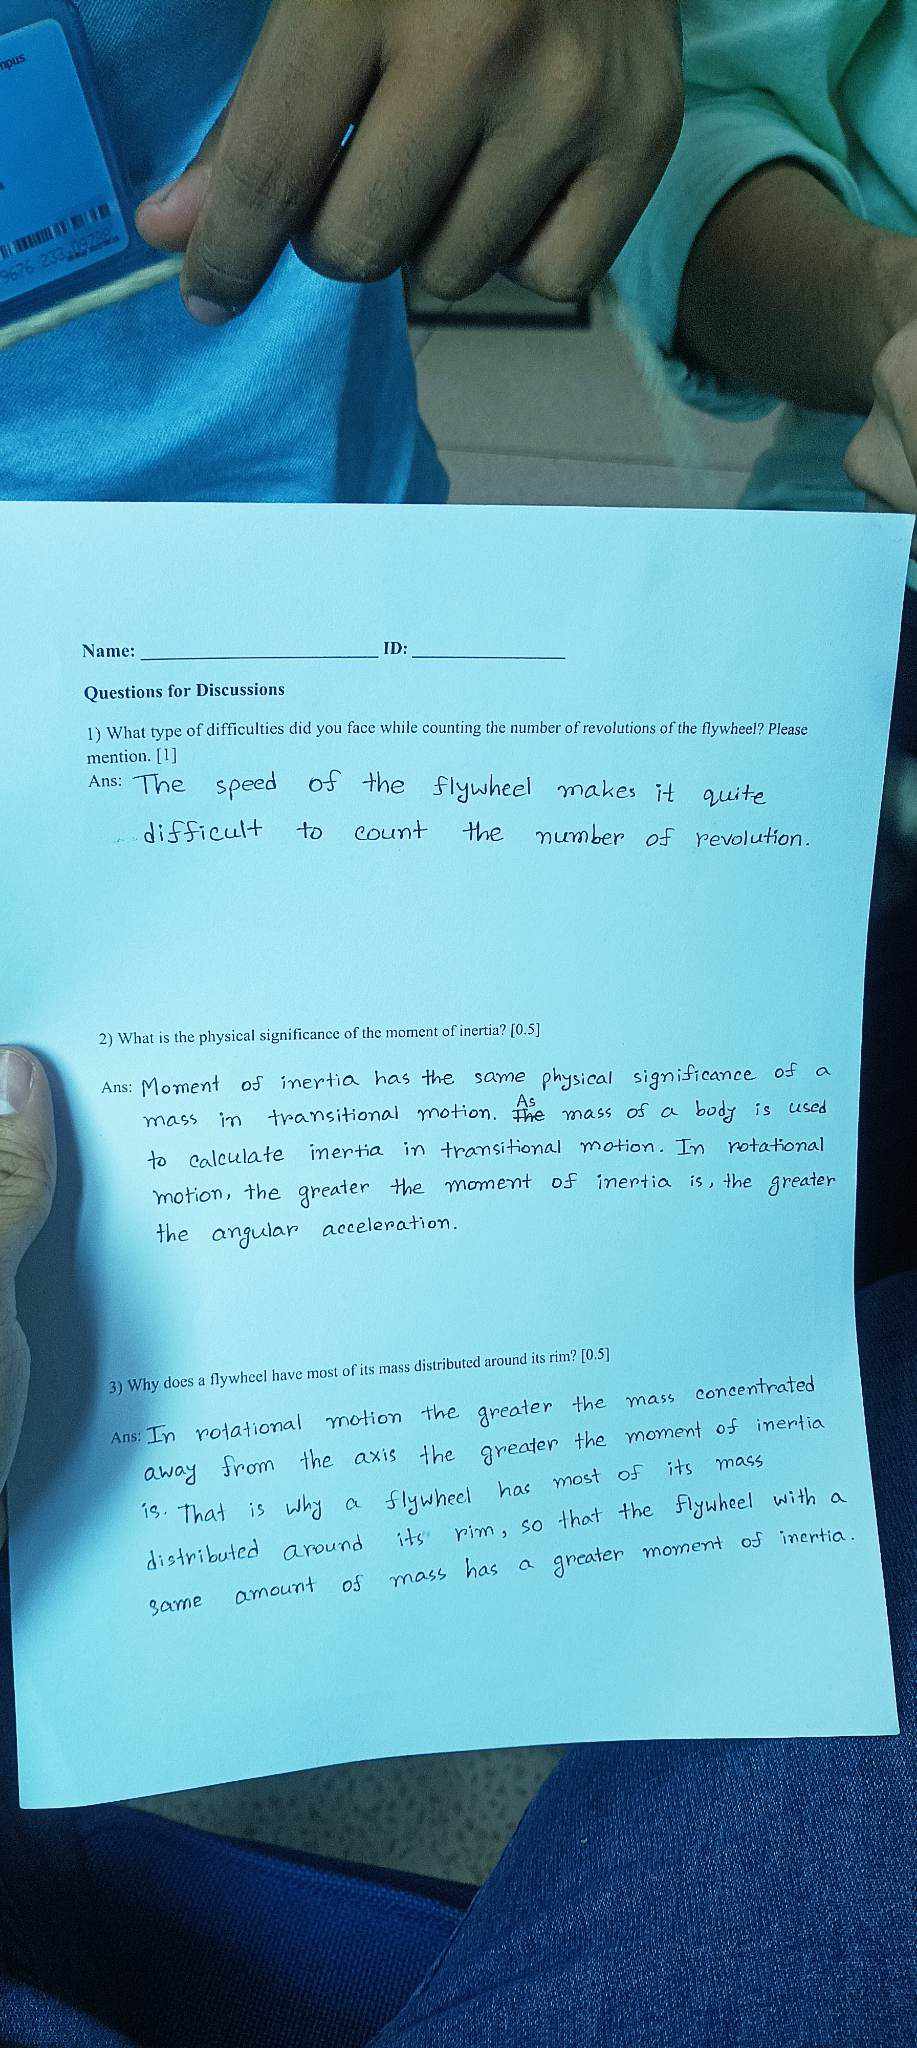 mpus
Name: ____________ ID: ____________
Questions for Discussions
1) What type of difficulties did you face while counting the number of revolutions of the flywheel? Please
mention. [1]
Ans: The speed of the flywheel makes it quite
difficult to count the number of revolution.
2) What is the physical significance of the moment of inertia? [0.5]
Ans: Moment of inertia has the same physical significance of a
As
mass in transitional motion. The mass of a body is used
to calculate inertia in transitional motion. In rotational
motion, the greater the moment of inertia is, the greater
the angular acceleration.
3) Why does a flywheel have most of its mass distributed around its rim? [0.5]
Ans: In rotational motion the greater the mass concentrated
away from the axis the greater the moment of inertia
is. That is why a flywheel has most of its mass
distributed around its rim, so that the flywheel with a
same amount of mass has a greater moment of inertia.